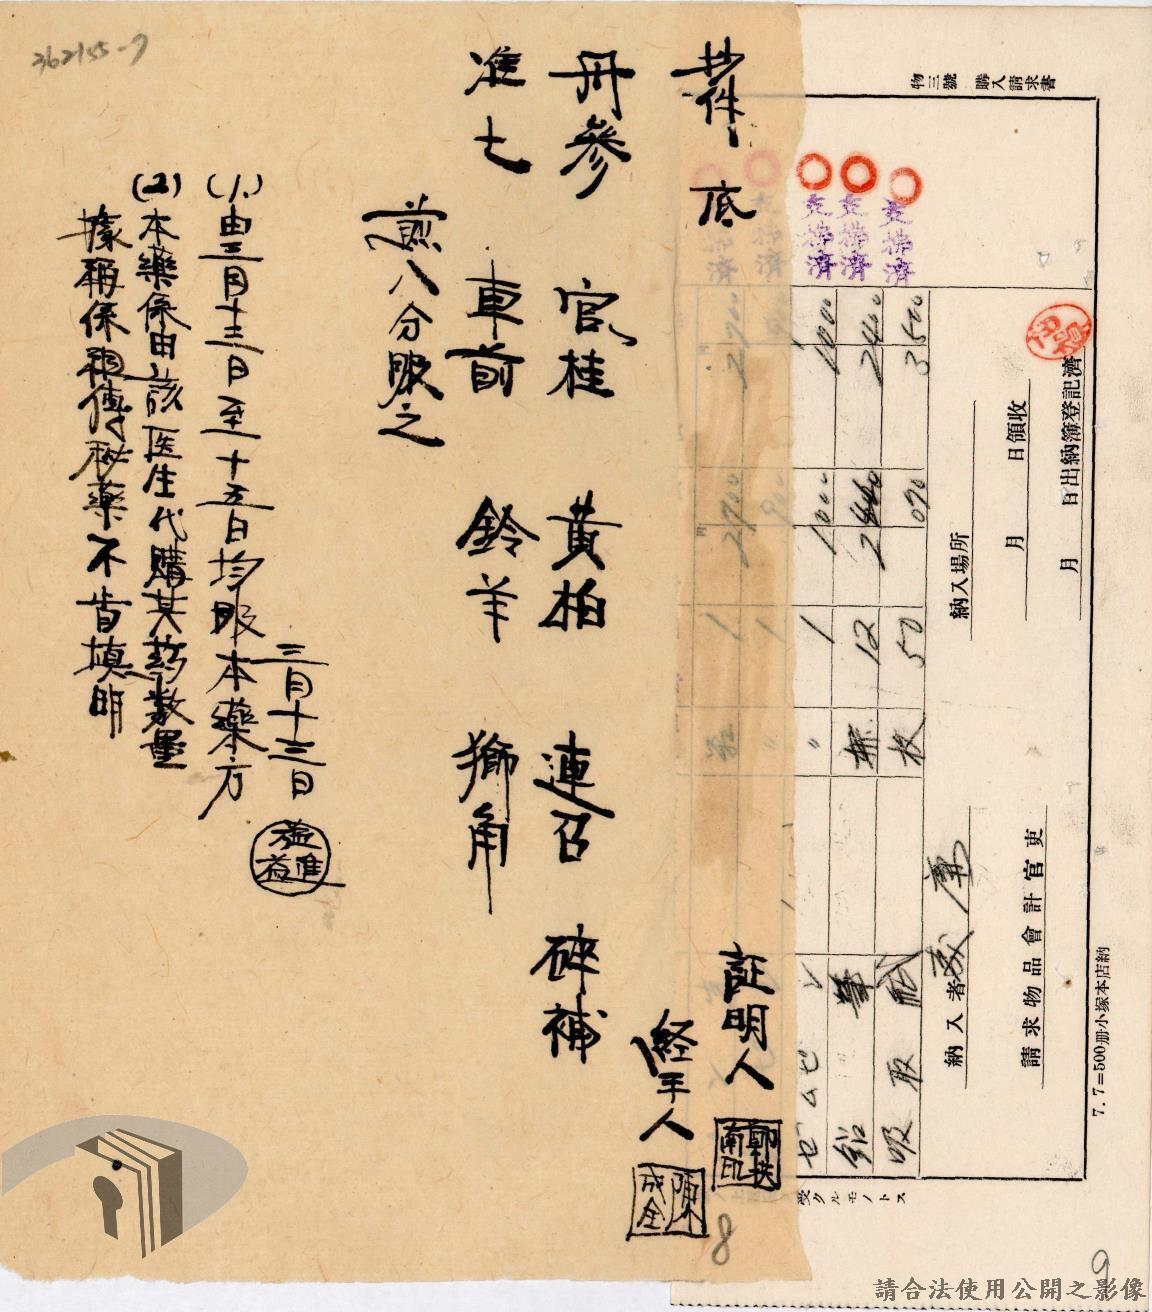 物三號 購入請求書
抄件 底
証明人
経手人 陳成全
冊參 官桂 黃柏 連召 碎補
准七 車前 鈴羊 獅角
煎八分服之
三月十三日
(1.)由三月十三日至十五日均服本藥方
(2)本藥係由該医生代購其药数量
據稱係祖傳秘藥不肯填明
362155-7
支拂濟
支拂濟
支拂濟
3500 070 50 枚 吸取紙
2400 2440 12 鉛筆
1000 1000 1 〃 ゼムピン
2900 2900 1
900 1 〃
濟
出納簿登記 月 日
領收 月 日
納入場所
納入者
請求物品會計官吏
7.7=500冊小塚本店納
受クルモノトス
8
9
請合法使用公開之影像